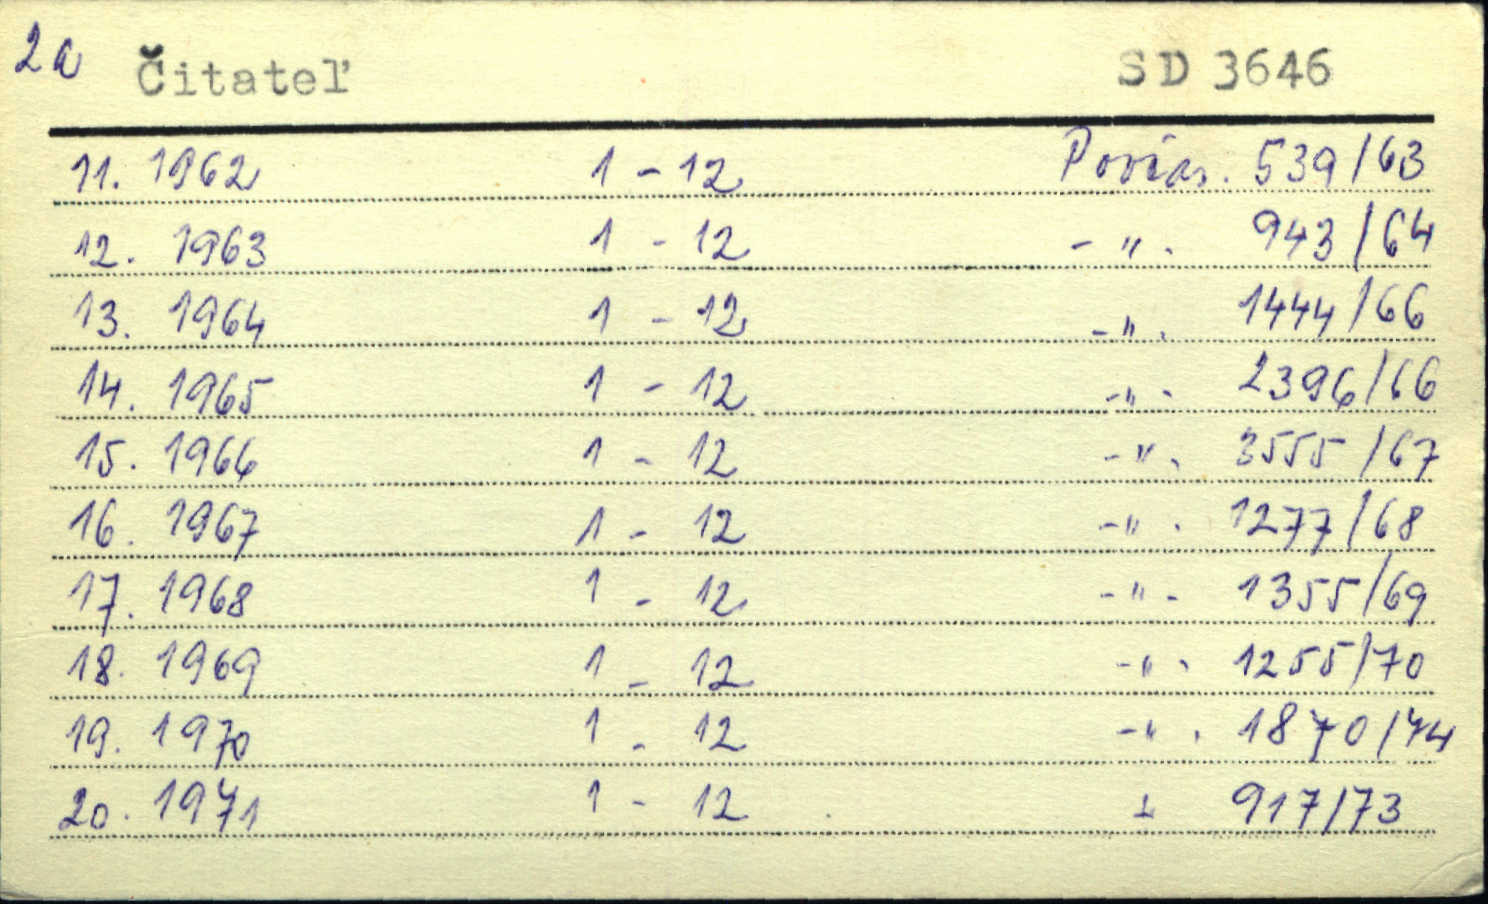 2a Čitateľ SD 3646
11. 1962 1 - 12 Povins. 539/63
12. 1963 1 - 12 - " - 943/64
13. 1964 1 - 12 - " - 1444/66
14. 1965 1 - 12 - " - 2396/66
15. 1966 1 - 12 - " - 3555/67
16. 1967 1 - 12 - " - 1277/68
17. 1968 1 - 12 - " - 1355/69
18. 1969 1 - 12 - " - 1255/70
19. 1970 1 - 12 - " - 1870/74
20. 1971 1 - 12 917/73